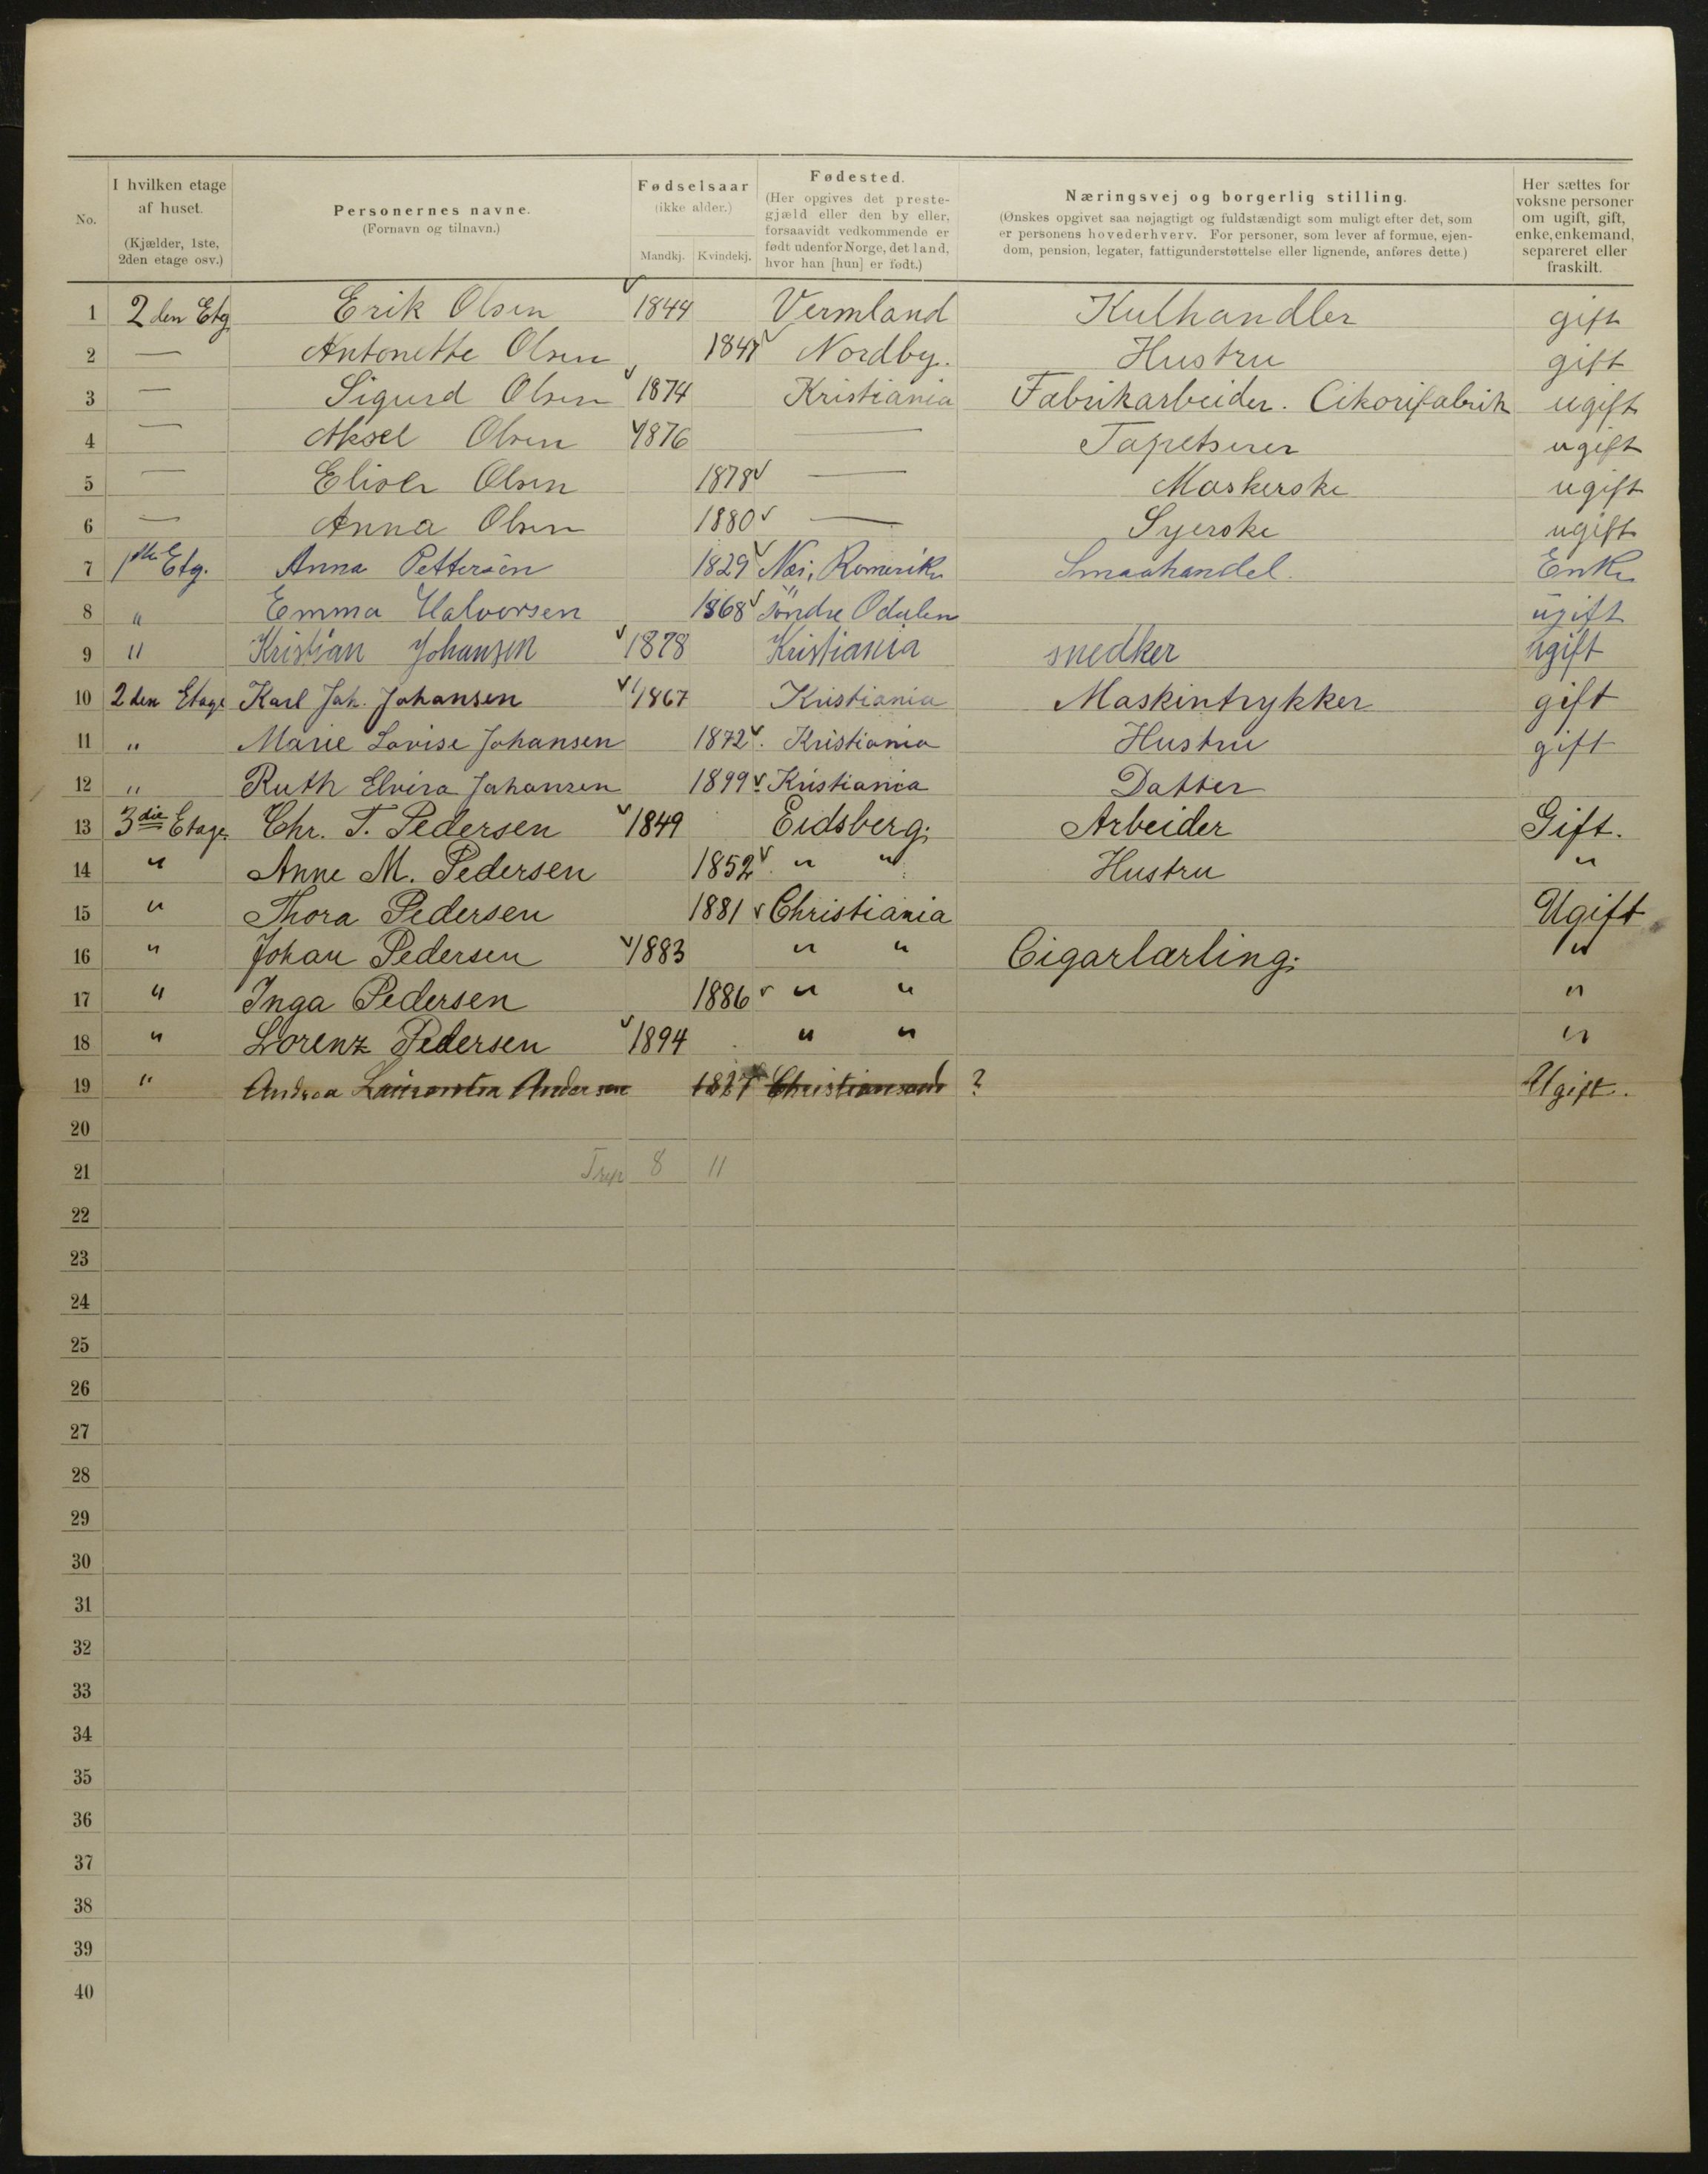 No. | I hvilken etage af huset. (Kjælder, 1ste, 2den etage osv.) | Personernes navne. (Fornavn og tilnavn.) | Fødselsaar (ikke alder.) Mandkj. Kvindekj. | Fødested. (Her opgives det prestegjæld eller den by eller, forsaavidt vedkommende er født udenfor Norge, det land, hvor han [hun] er født.) | Næringsvej og borgerlig stilling. (Ønskes opgivet saa nøjagtigt og fuldstændigt som muligt efter det, som er personens hovederhverv. For personer, som lever af formue, ejendom, pension, legater, fattigunderstøttelse eller lignende, anføres dette.) | Her sættes for voksne personer om ugift, gift, enke, enkemand, separeret eller fraskilt.
1 2den Etg Erik Olsen 1844 Vermland Kulhandler gift
2 — Antonette Olsen Nordby. Hustru gift
3 — Sigurd Olsen 1874 Kristiania Fabrikarbeider. Cikorifabrik ugift
4 — Aksel Olsen 1876 — Tapetserer ugift
5 — Olsen 1878 — Maskerske ugift
6 — Anna Olsen 1880 — Syerske ugift
7 1ste Etg. Anna Petterson 1829 Nes, Romerike Smaahandel. Enke
8 " Emma Halvorsen 1868 Søndre Odalen ugift
9 " Kristian Johansen 1878 Kristiania snedker ugift
10 2den Etage Karl Joh. Johansen 1867 Kristiania Maskintrykker gift
11 " Marie Lovise Johansen 1872 Kristiania Hustru gift
12 " Ruth Elvira Johansen 1899 Kristiania Datter
13 3die Etage Chr. T. Pedersen 1849 Eidsberg. Arbeider Gift.
14 " Anne M. Pedersen 1852 " " Hustru "
15 " Thora Pedersen 1881 Christiania Ugift
16 " Johan Pedersen 1883 " " Cigarlærling. "
17 " Inga Pedersen 1886 " " "
18 " Lorenz Pedersen 1894 " " "
19 " Andrea Andersen Christiansand ? Ugift.
20
21 8 11
22
23
24
25
26
27
28
29
30
31
32
33
34
35
36
37
38
39
40